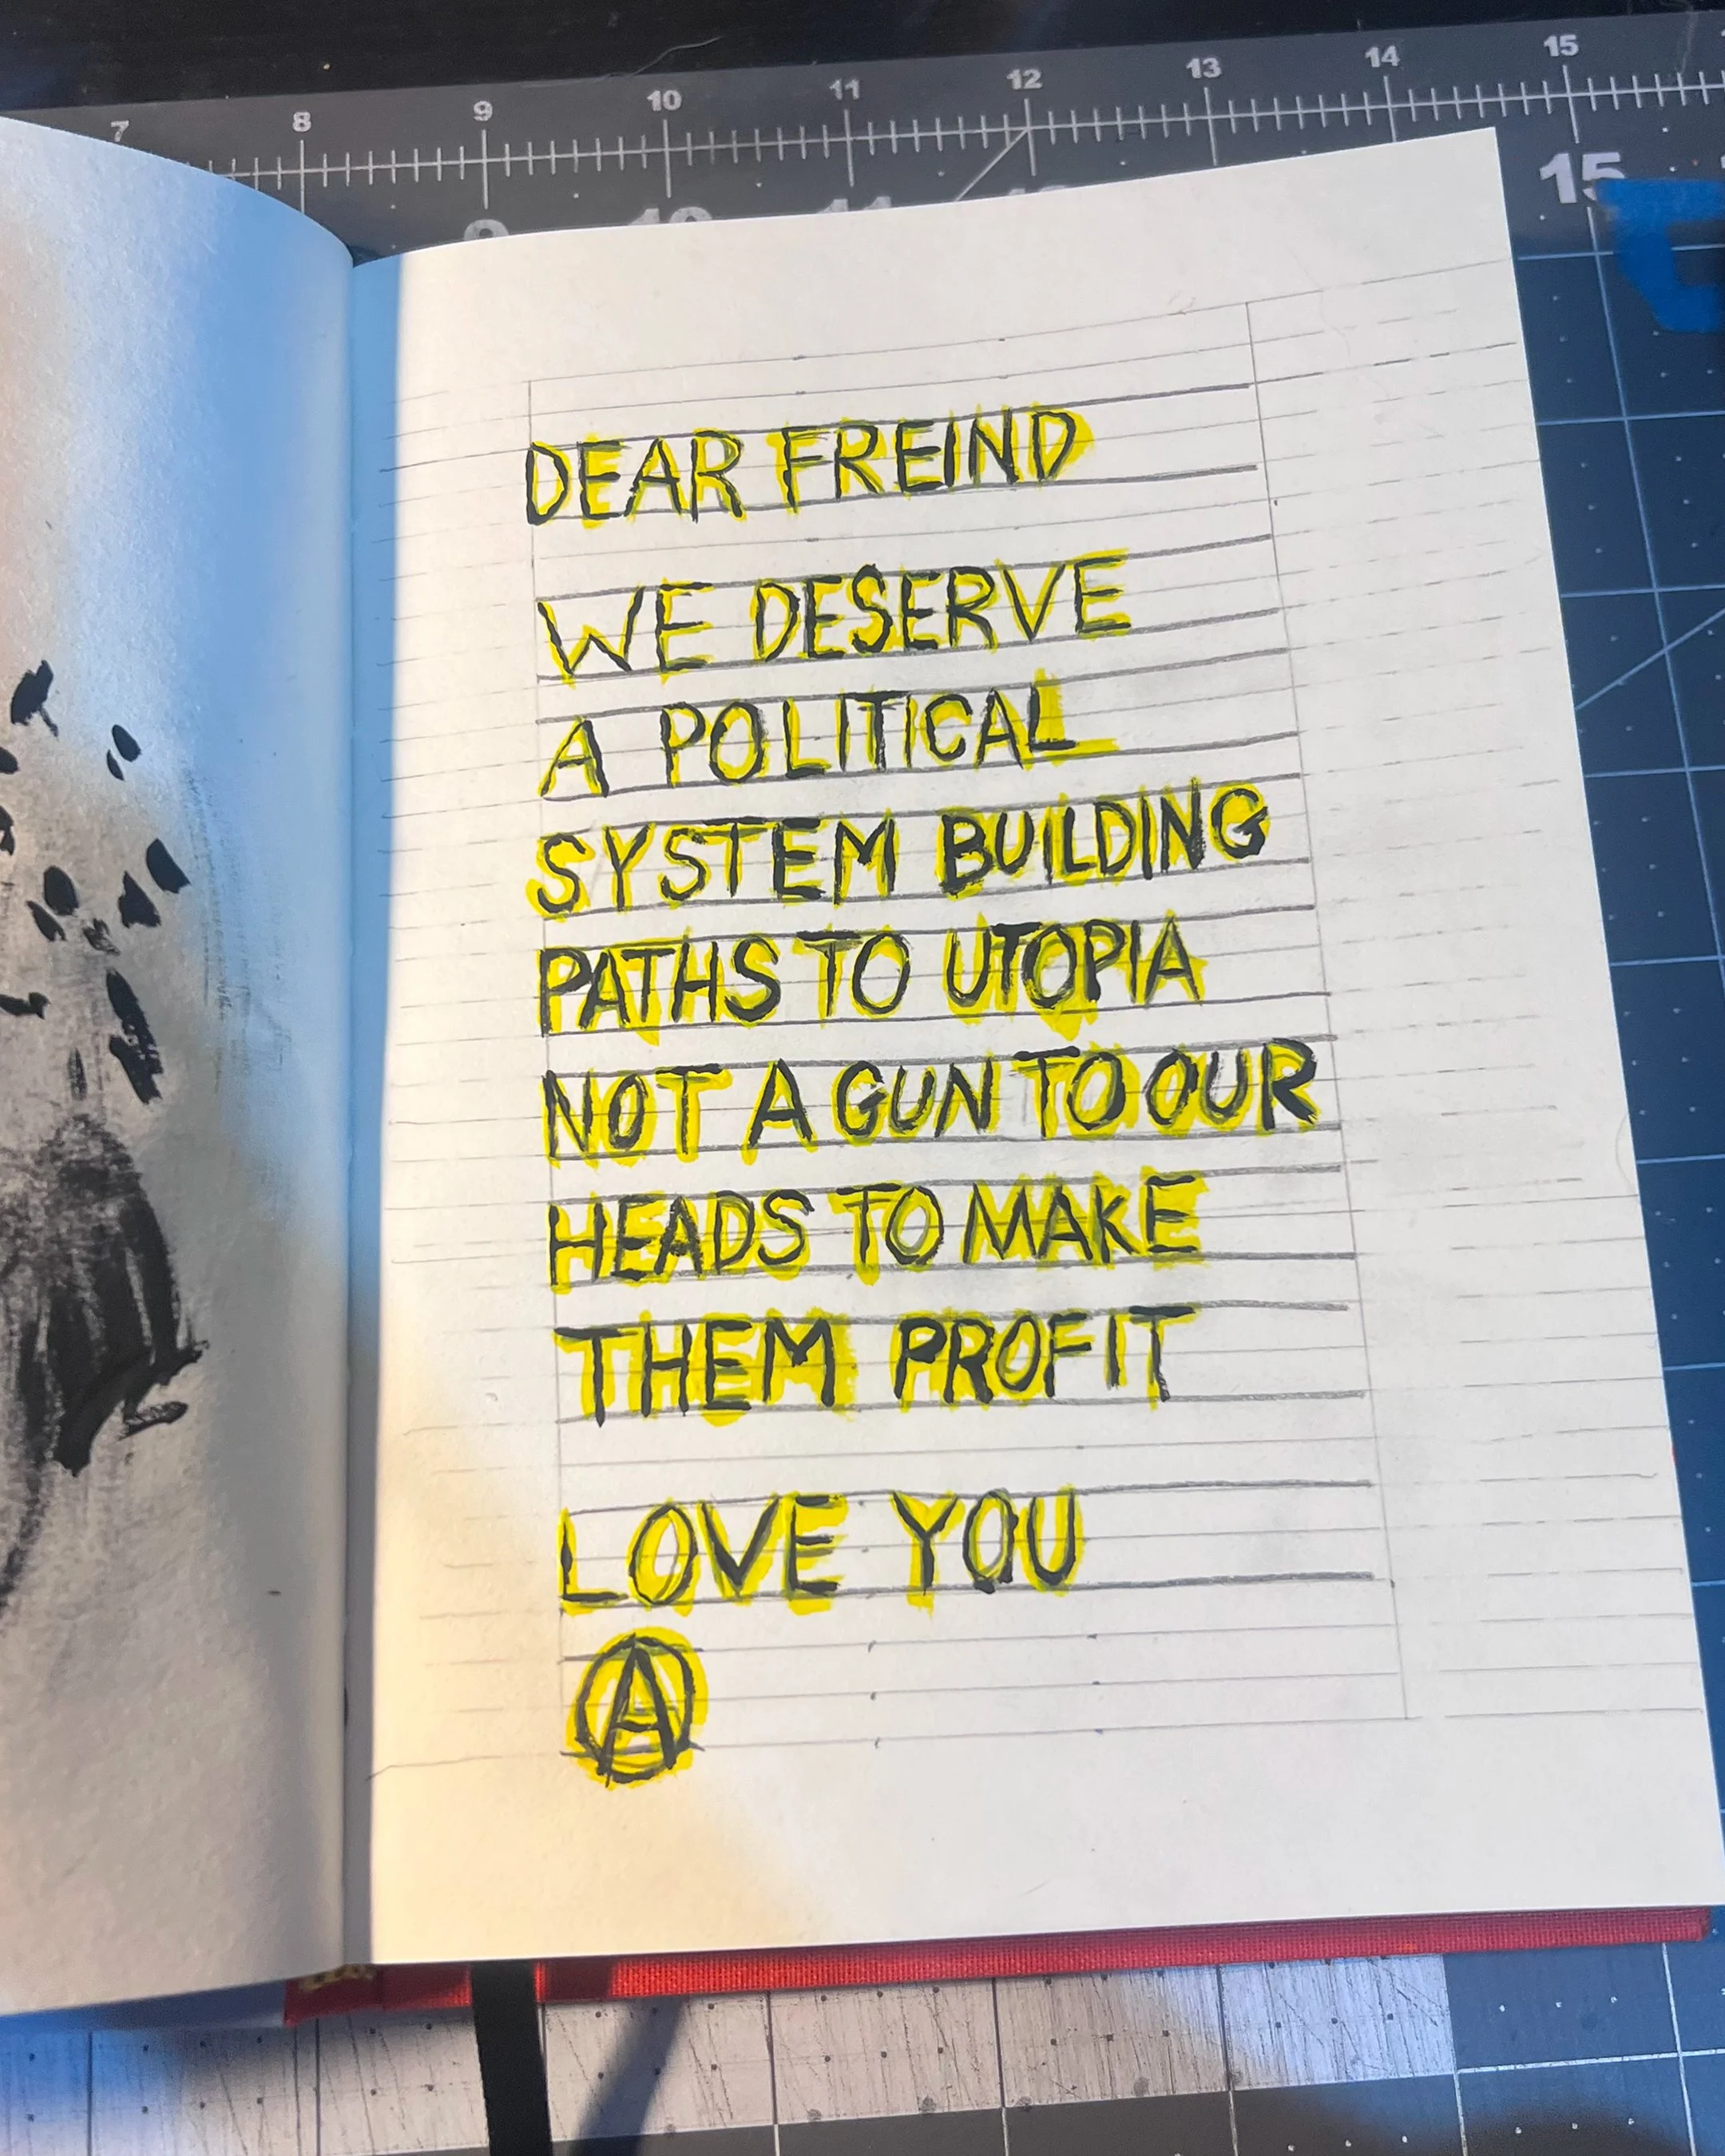 7 8 9 10 11 12 13 14 15
15
DEAR FREIND
WE DESERVE
A POLITICAL
SYSTEM BUILDING
PATHS TO UTOPIA
NOT A GUN TO OUR
HEADS TO MAKE
THEM PROFIT
LOVE YOU
Ⓐ